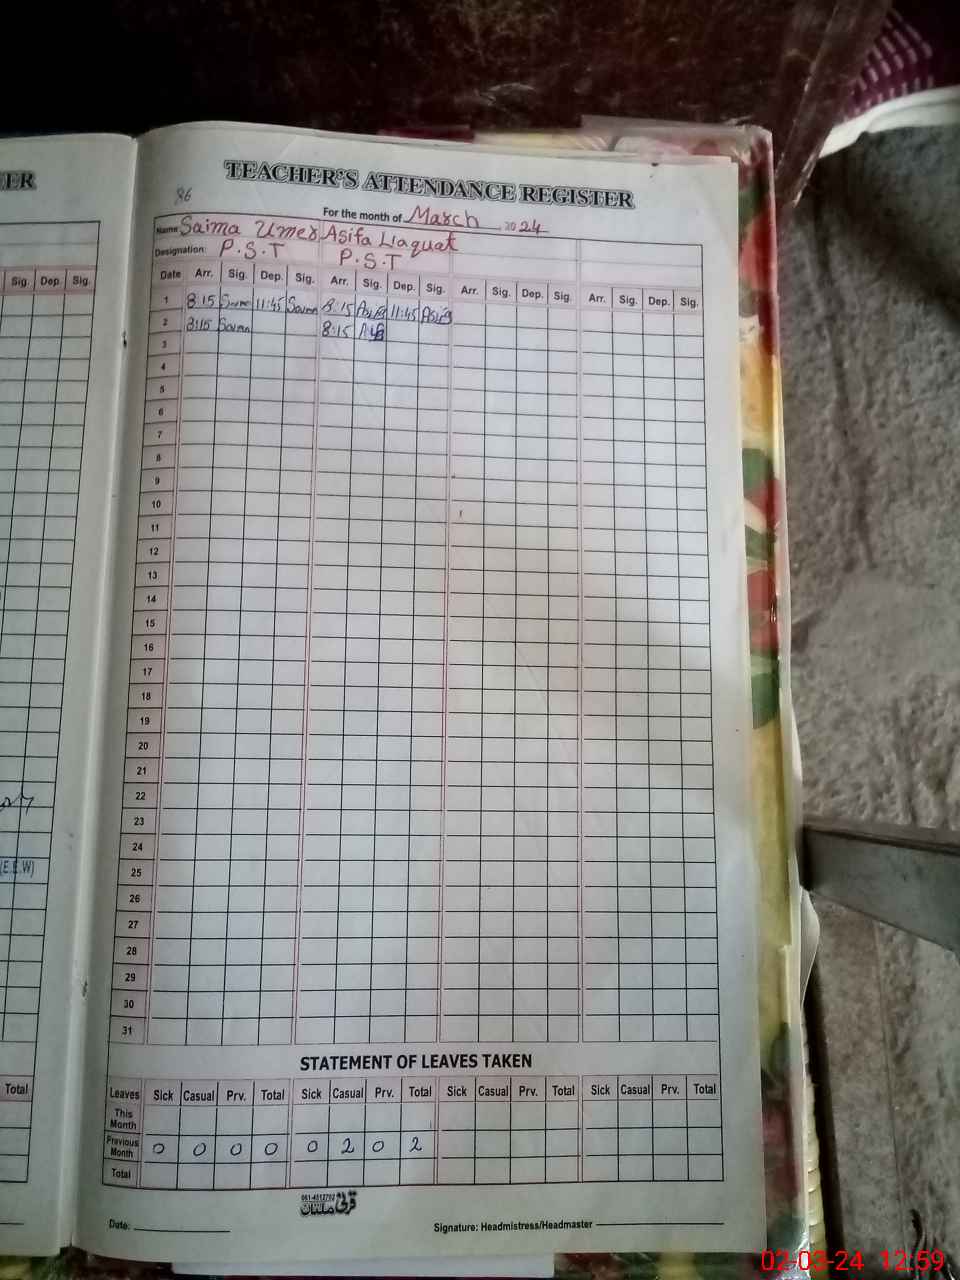 ER
TEACHER'S ATTENDANCE REGISTER
86
For the month of March 2024
Name: Saima Umer Asifa Liaquat
Designation: P.S.T P.S.T
Sig. Dep. Sig.
Date Arr. Sig. Dep. Sig. Arr. Sig. Dep. Sig. Arr. Sig. Dep. Sig. Arr. Sig. Dep. Sig.
1 8:15 11:45 8:15 11:45
2 8:15 8:15
3
4
5
6
7
8
9
10
11
12
13
14
15
16
17
18
19
20
21
22
23
24
25
26
27
28
29
30
31
(E.E.W)
STATEMENT OF LEAVES TAKEN
Total
Leaves Sick Casual Prv. Total Sick Casual Prv. Total Sick Casual Prv. Total Sick Casual Prv. Total
This Month
Previous Month 0 0 0 0 0 2 0 2
Total
061-4512792
Date:
Signature: Headmistress/Headmaster
02-03-24 12:59